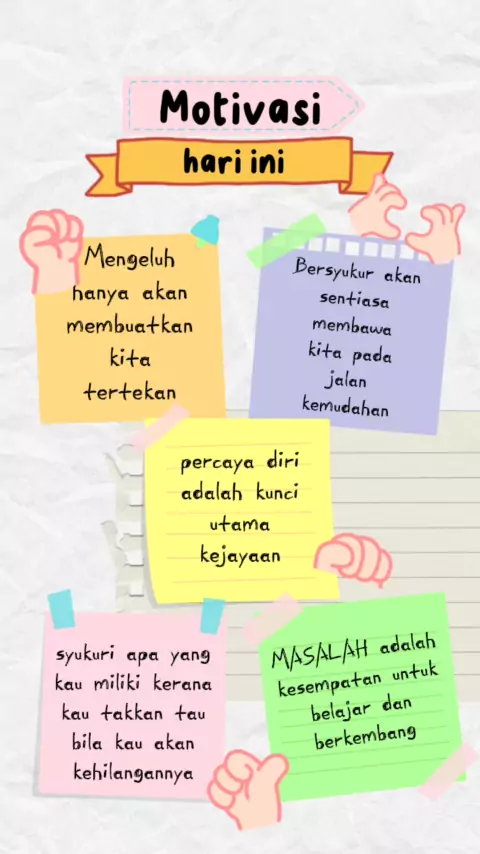 Motivasi
hari ini
Mengeluh
hanya akan
membuatkan
kita
tertekan
Bersyukur akan
sentiasa
membawa
kita pada
jalan
kemudahan
percaya diri
adalah kunci
utama
kejayaan
syukuri apa yang
kau miliki kerana
kau takkan tau
bila kau akan
kehilangannya
MASALAH adalah
kesempatan untuk
belajar dan
berkembang